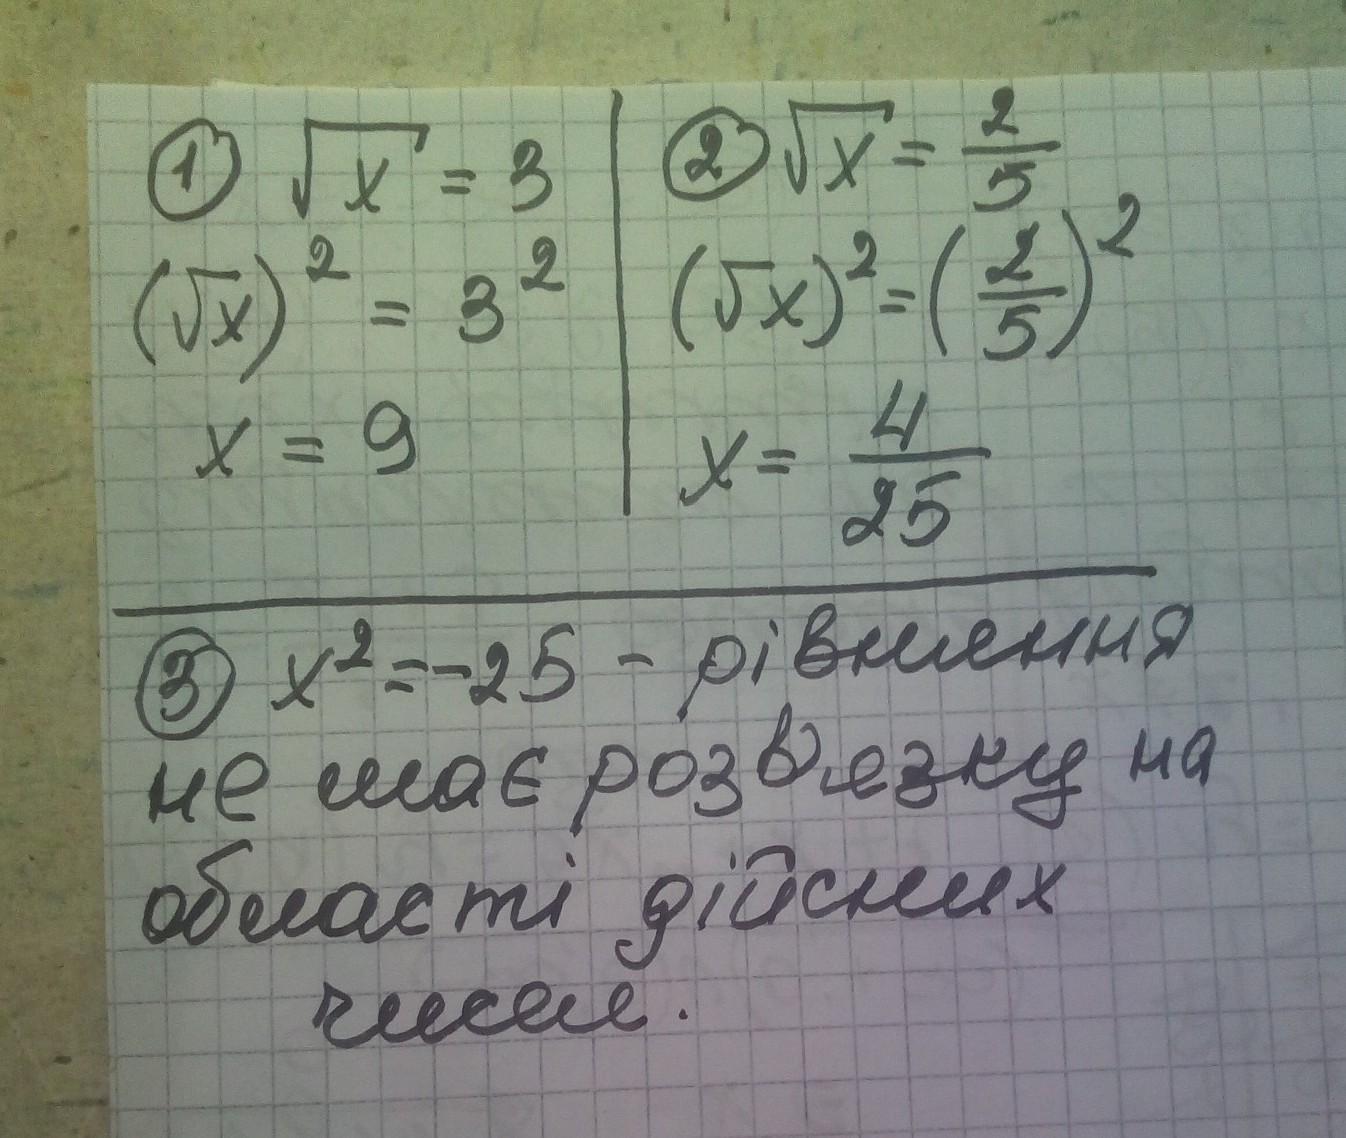 ① √x = 3
(√x)² = 3²
x = 9
② √x = 2/5
(√x)² = (2/5)²
x = 4/25
③ x² = -25 - рівняння
не має розв'язку на
області дійсних
чисел.